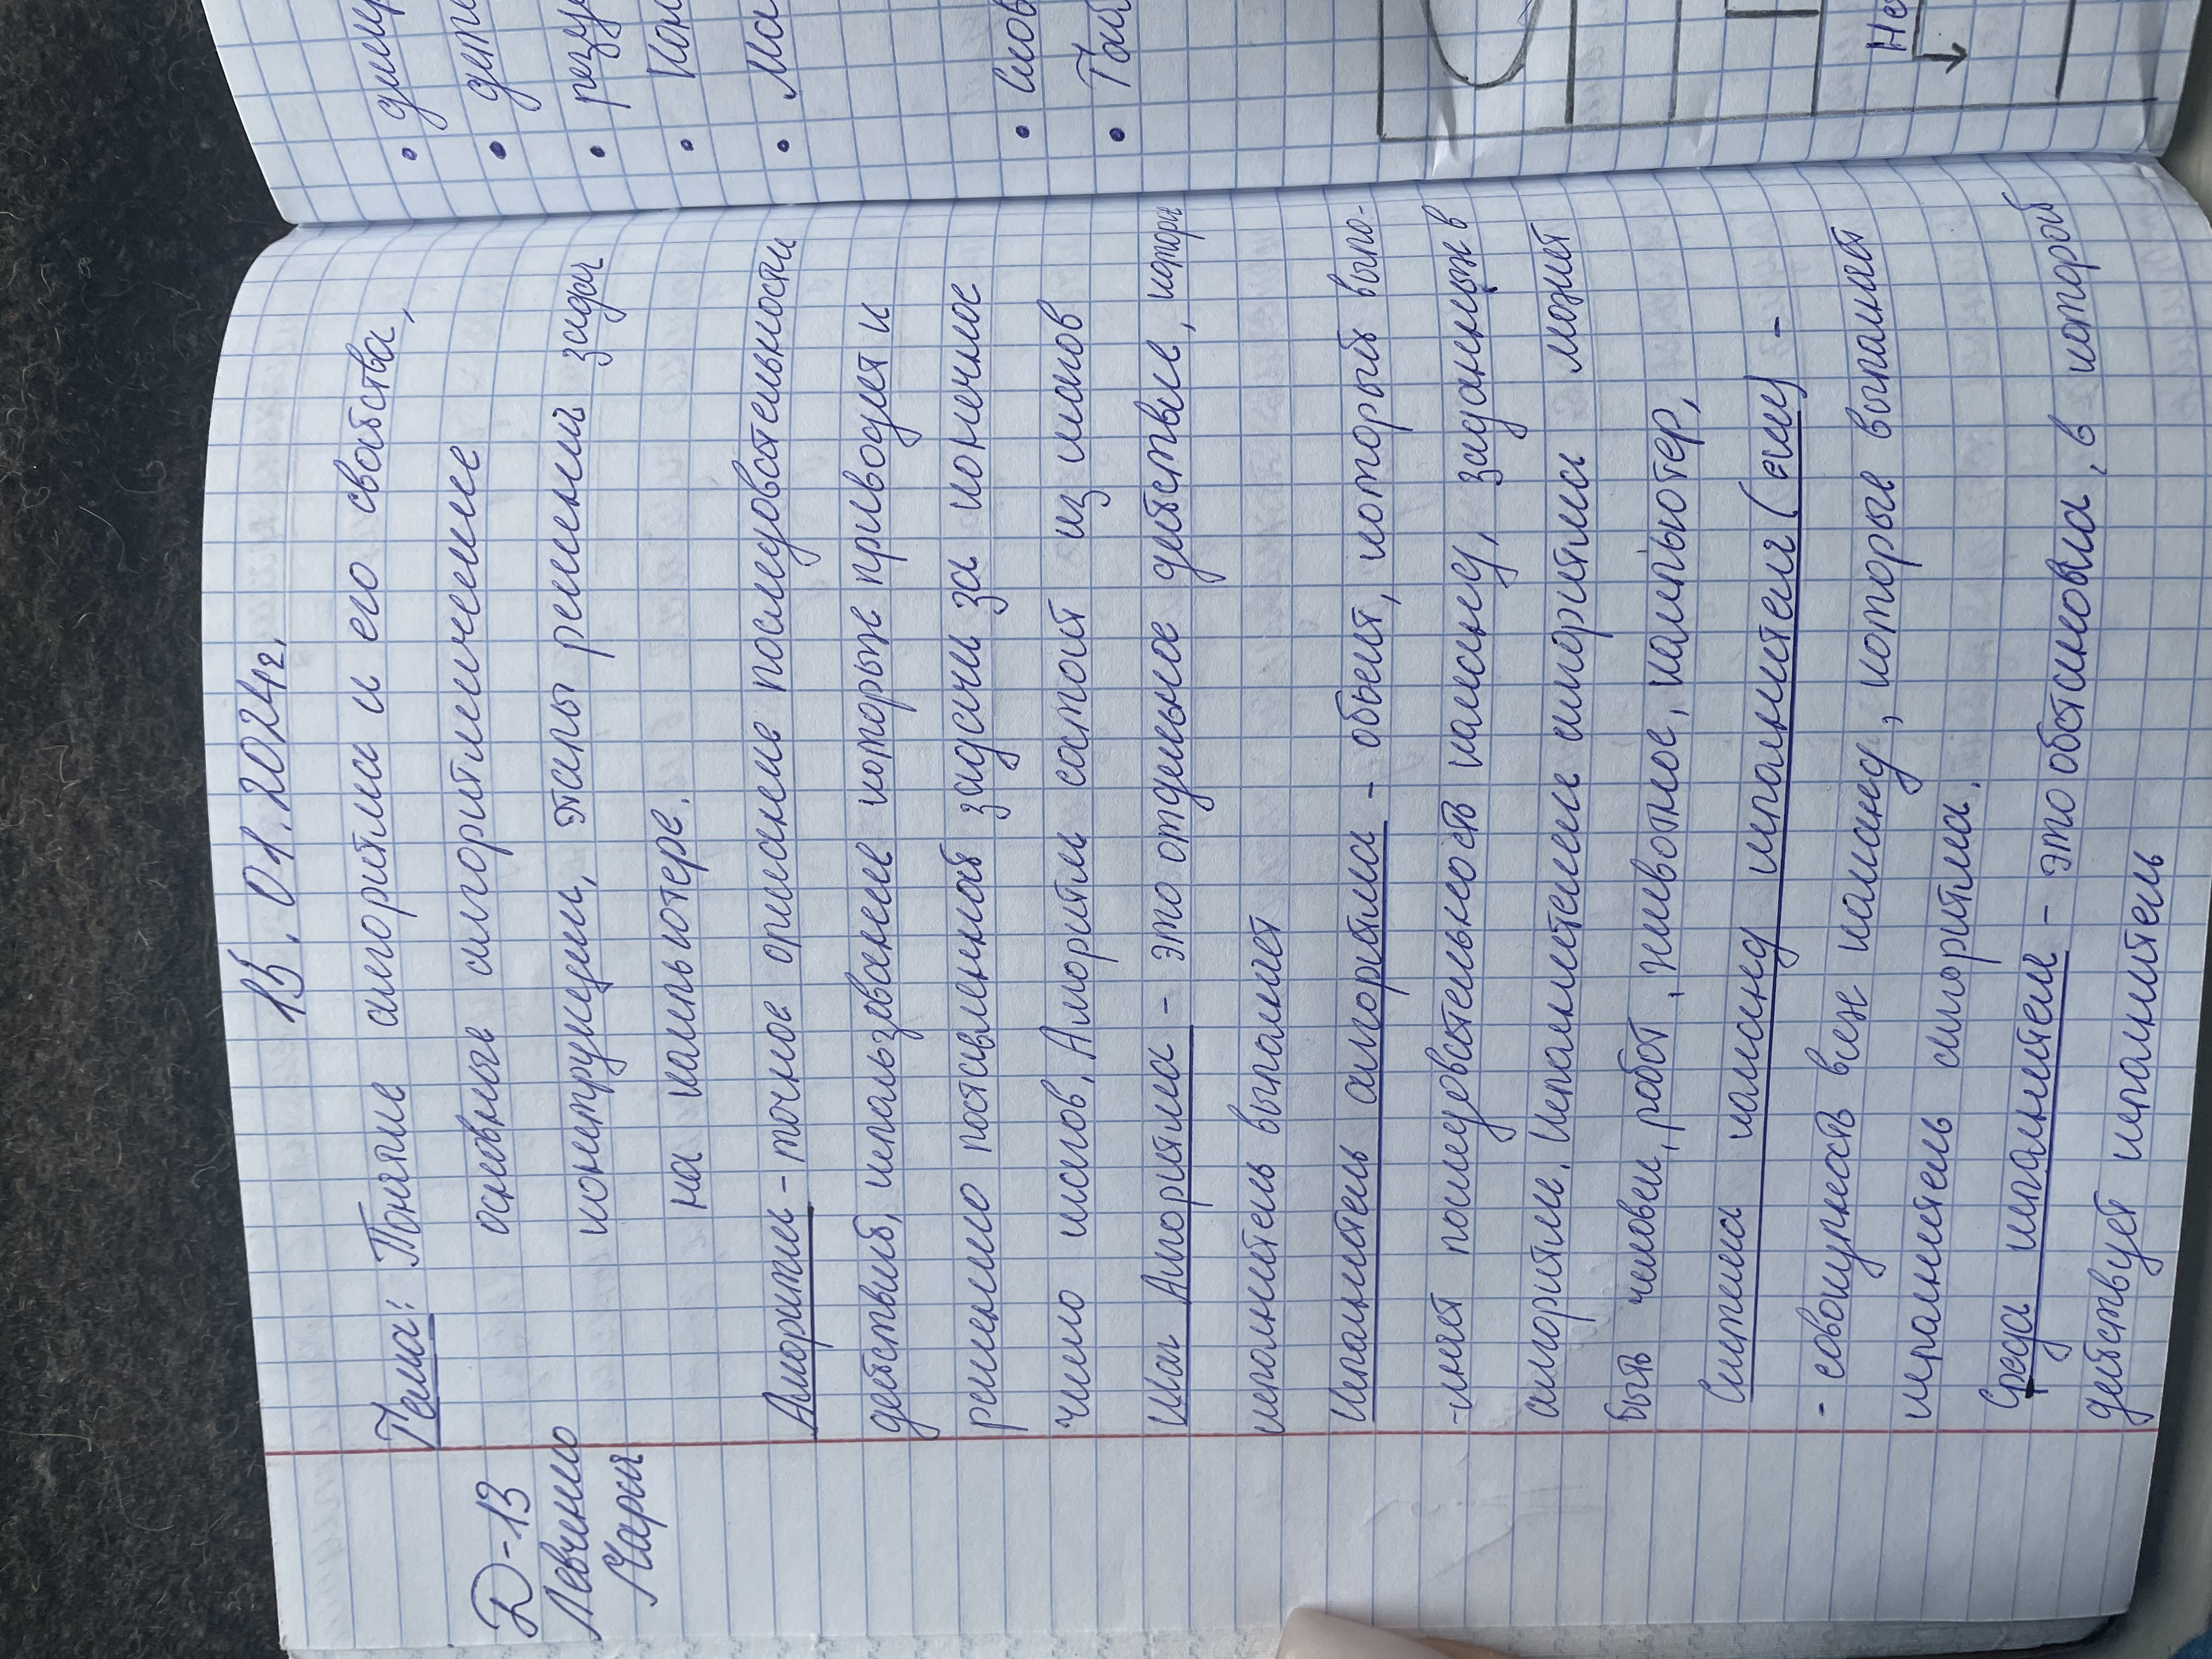 15.01.2024г.
Тема: Понятие алгоритма и его свойства,
основные алгоритмические
конструкции, этапы решения задач
на компьютере.
Д-13
Левченко
Марья
Алгоритм - точное описание последовательности
действий, использование которых приводит к
решению поставленной задачи за конечное
число шагов. Алгоритм состоит из шагов
Шаг Алгоритма - это отдельное действие, которы
исполнитель выполняет
Исполнитель алгоритма - объект, который выпо-
-лняет последовательность команд, заданных в
алгоритме. Исполнителем алгоритма может
быть человек, робот, животное, компьютер,
Система команд исполнителя (скн) -
- совокупность всех команд, которые выполняет
исполнитель алгоритма.
Среда исполнителя - это обстановка, в которой
действует исполнитель
• диску
• дете
• резу
• Кон
• Ма
• Слов
• Таб
Не